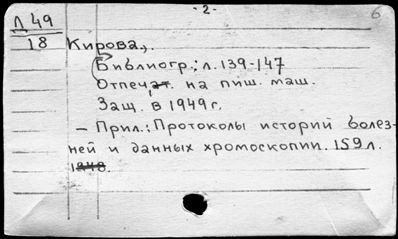 -2-
б
Л 49
18
Кирова,.
Библиогр.; л. 139-147
Отпечат. на пиш. маш.
Защ. в 1949 г.
— Прил.: Протоколы историй болез-
ней и данных хромоскопии. 159 л.
1948.